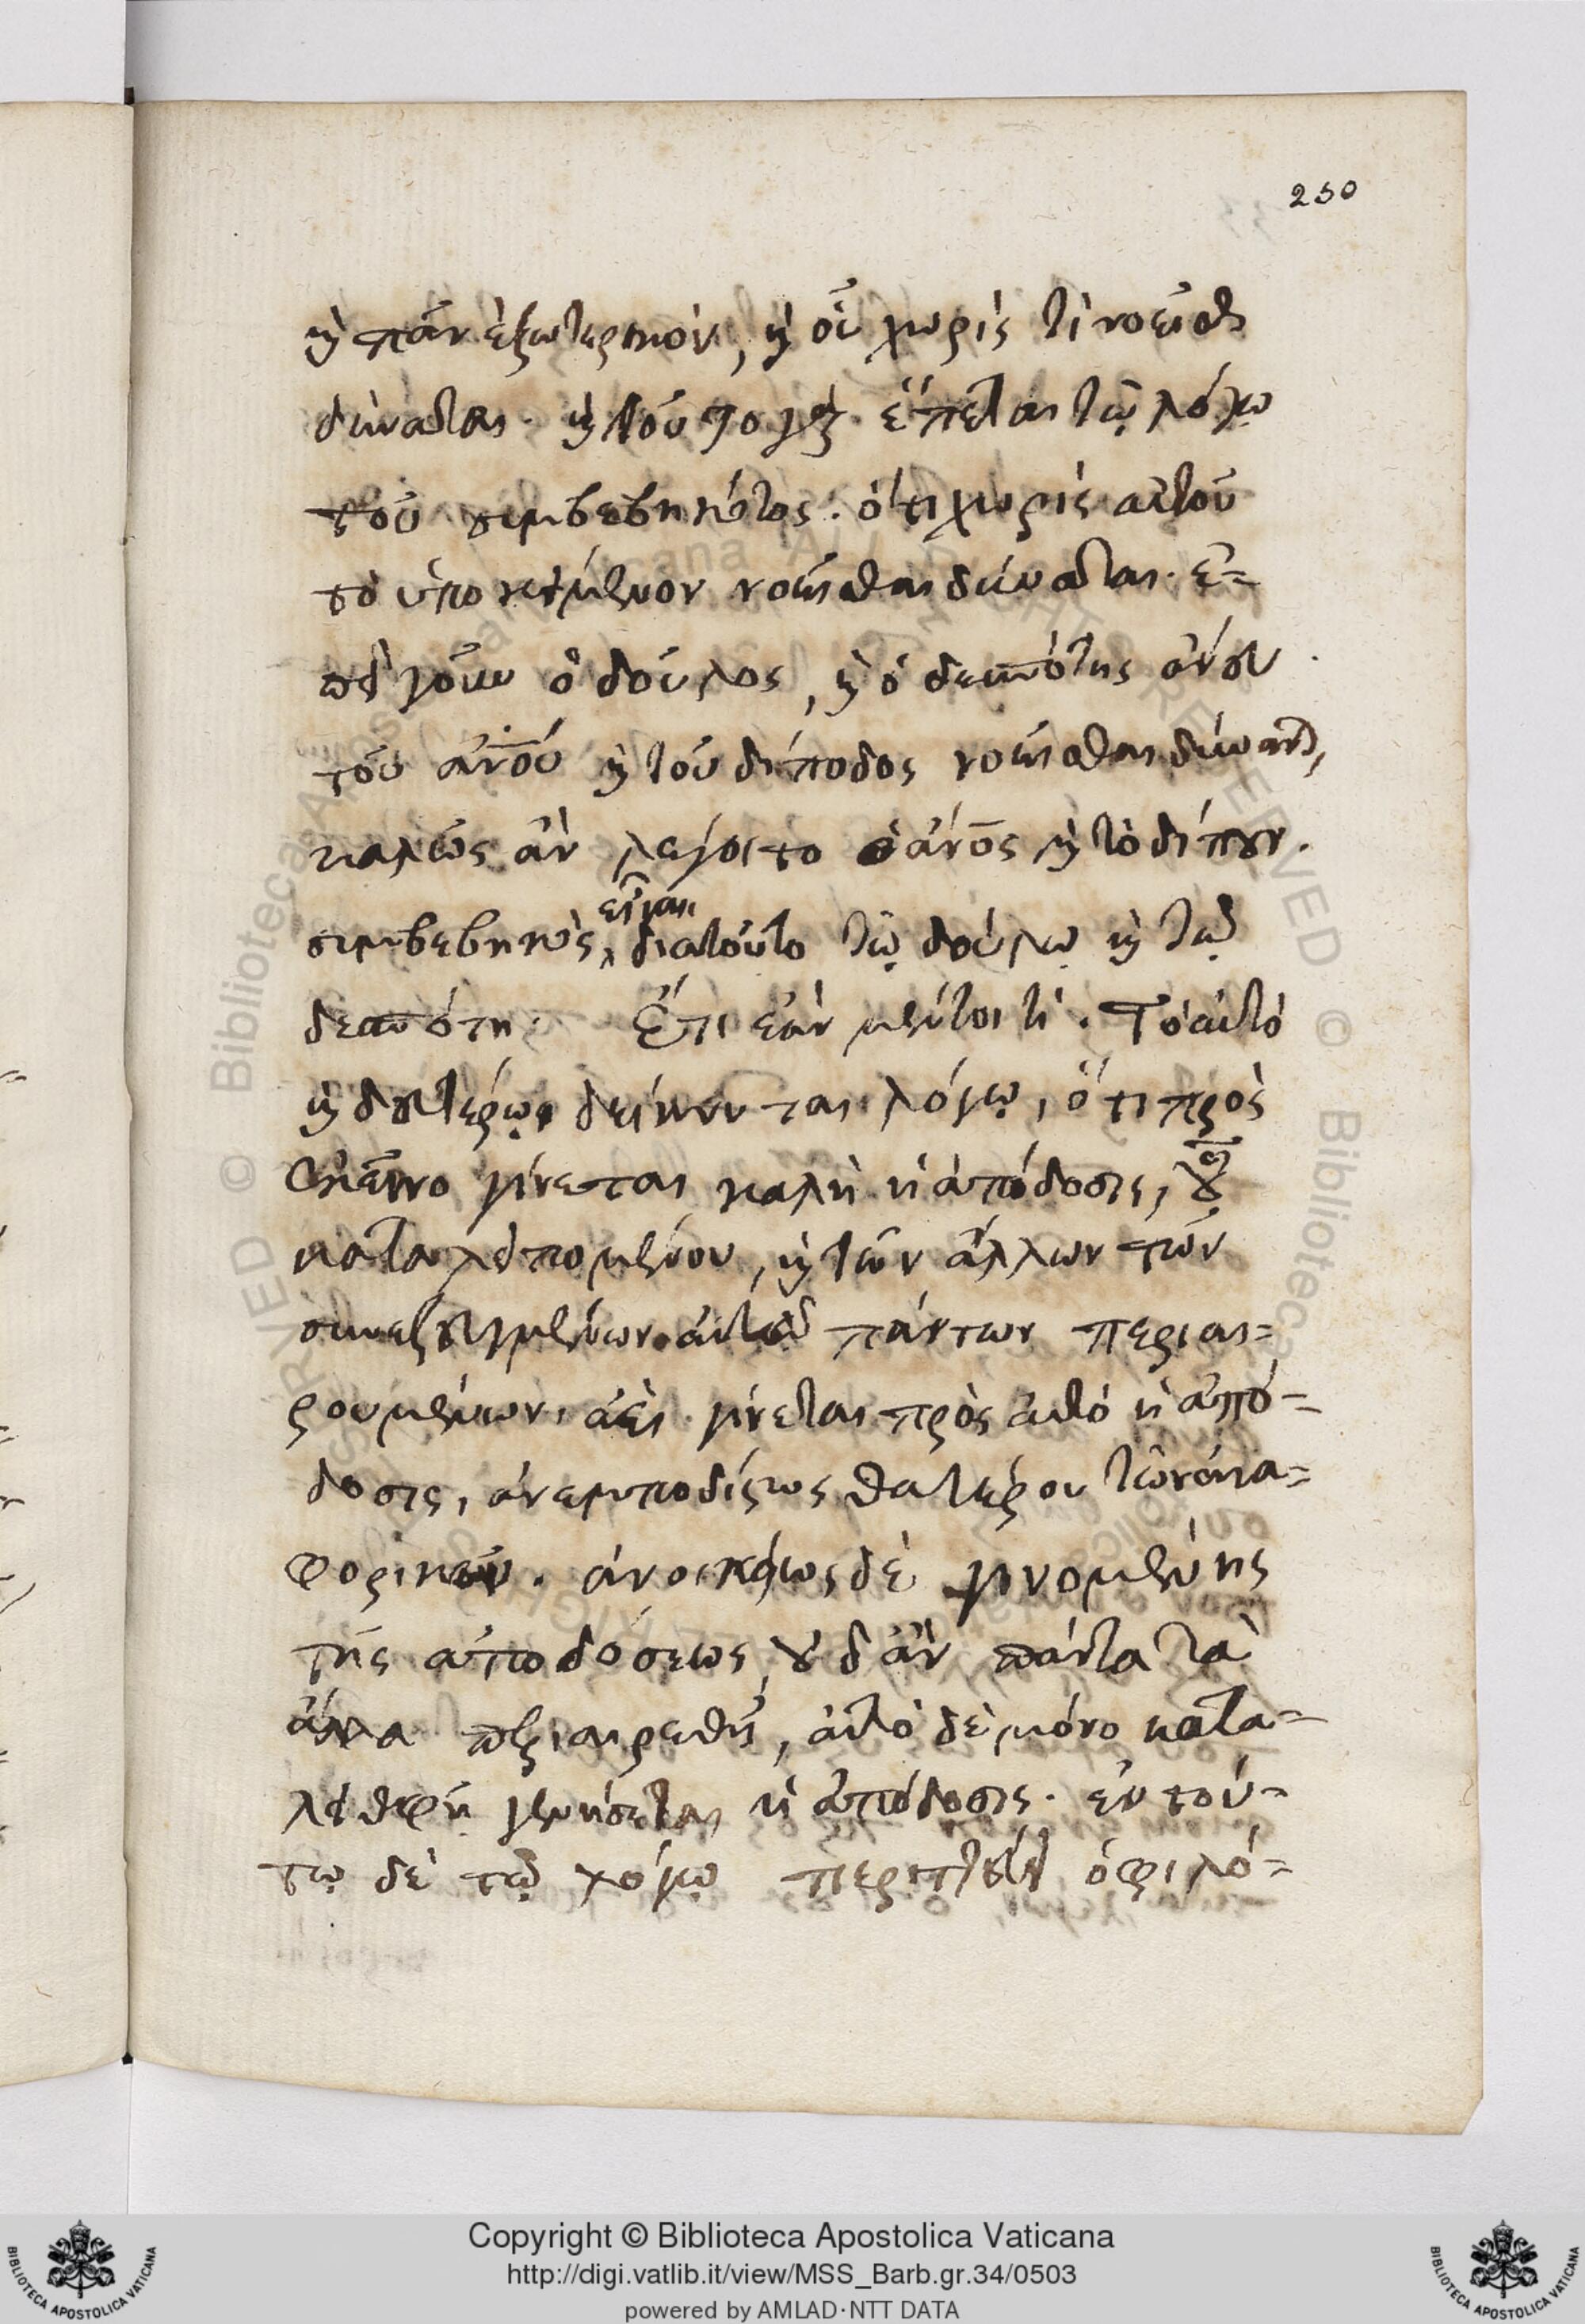 250
ἢ πᾶν ἐξωτερικόν, ἢ οὗ χωρίς τι νοεῖσθαι
δύναται. καὶ τοῦτο γὰρ ἕπεται τῷ λόγῳ
τοῦ συμβεβηκότος. ὅτι χωρὶς αὐτοῦ
τὸ ὑποκείμενον νοεῖσθαι δύναται. ἐ=
πεὶ γοῦν ὁ δοῦλος, καὶ ὁ δεσπότης ἄνευ
τοῦ ἀνοῦ καὶ τοῦ δίποδος νοεῖσθαι δύναται,
καλῶς ἂν λέγοιτο ὁ ἄνος καὶ τὸ δίπουν.
συμβεβηκὸς εἶναι διατοῦτο τῷ δούλῳ καὶ τῷ
δεσπότῃ. Ἔτι ἐὰν μέντοι τί. Τὸ αὐτὸ
καὶ δευτέρῳ δείκνυται λόγῳ, ὅτι πρὸς
ἐκεῖνο γίνεται καλὴ ἡ ἀπόδοσις, οὗ
καταλειπομένου, καὶ τῶν ἄλλων τῶν
συνεζευγμένων αὐτῷ πάντων περιαι=
ρουμένων, ἀεὶ γίνεται πρὸς αὐτὸ ἡ ἀπό=
δοσις, ἀνεμποδίστως θατέρου τῶν ἀνα=
φορικῶν. ἀνοικείως δὲ γινομένης
τῆς ἀποδόσεως, οὐδ' ἂν πάντα τὰ
ἄλλα περιαιρεθῇ, αὐτὸ δὲ μόνο κατα=
λειφθῇ γενήσεται ἡ ἀπόδοσις. ἐν τού=
τῳ δὲ τῷ λόγῳ περιττεύει ὁ φιλό=
Copyright © Biblioteca Apostolica Vaticana
http://digi.vatlib.it/view/MSS_Barb.gr.34/0503
powered by AMLAD·NTT DATA
BIBLIOTECA APOSTOLICA VATICANA
BIBLIOTECA APOSTOLICA VATICANA